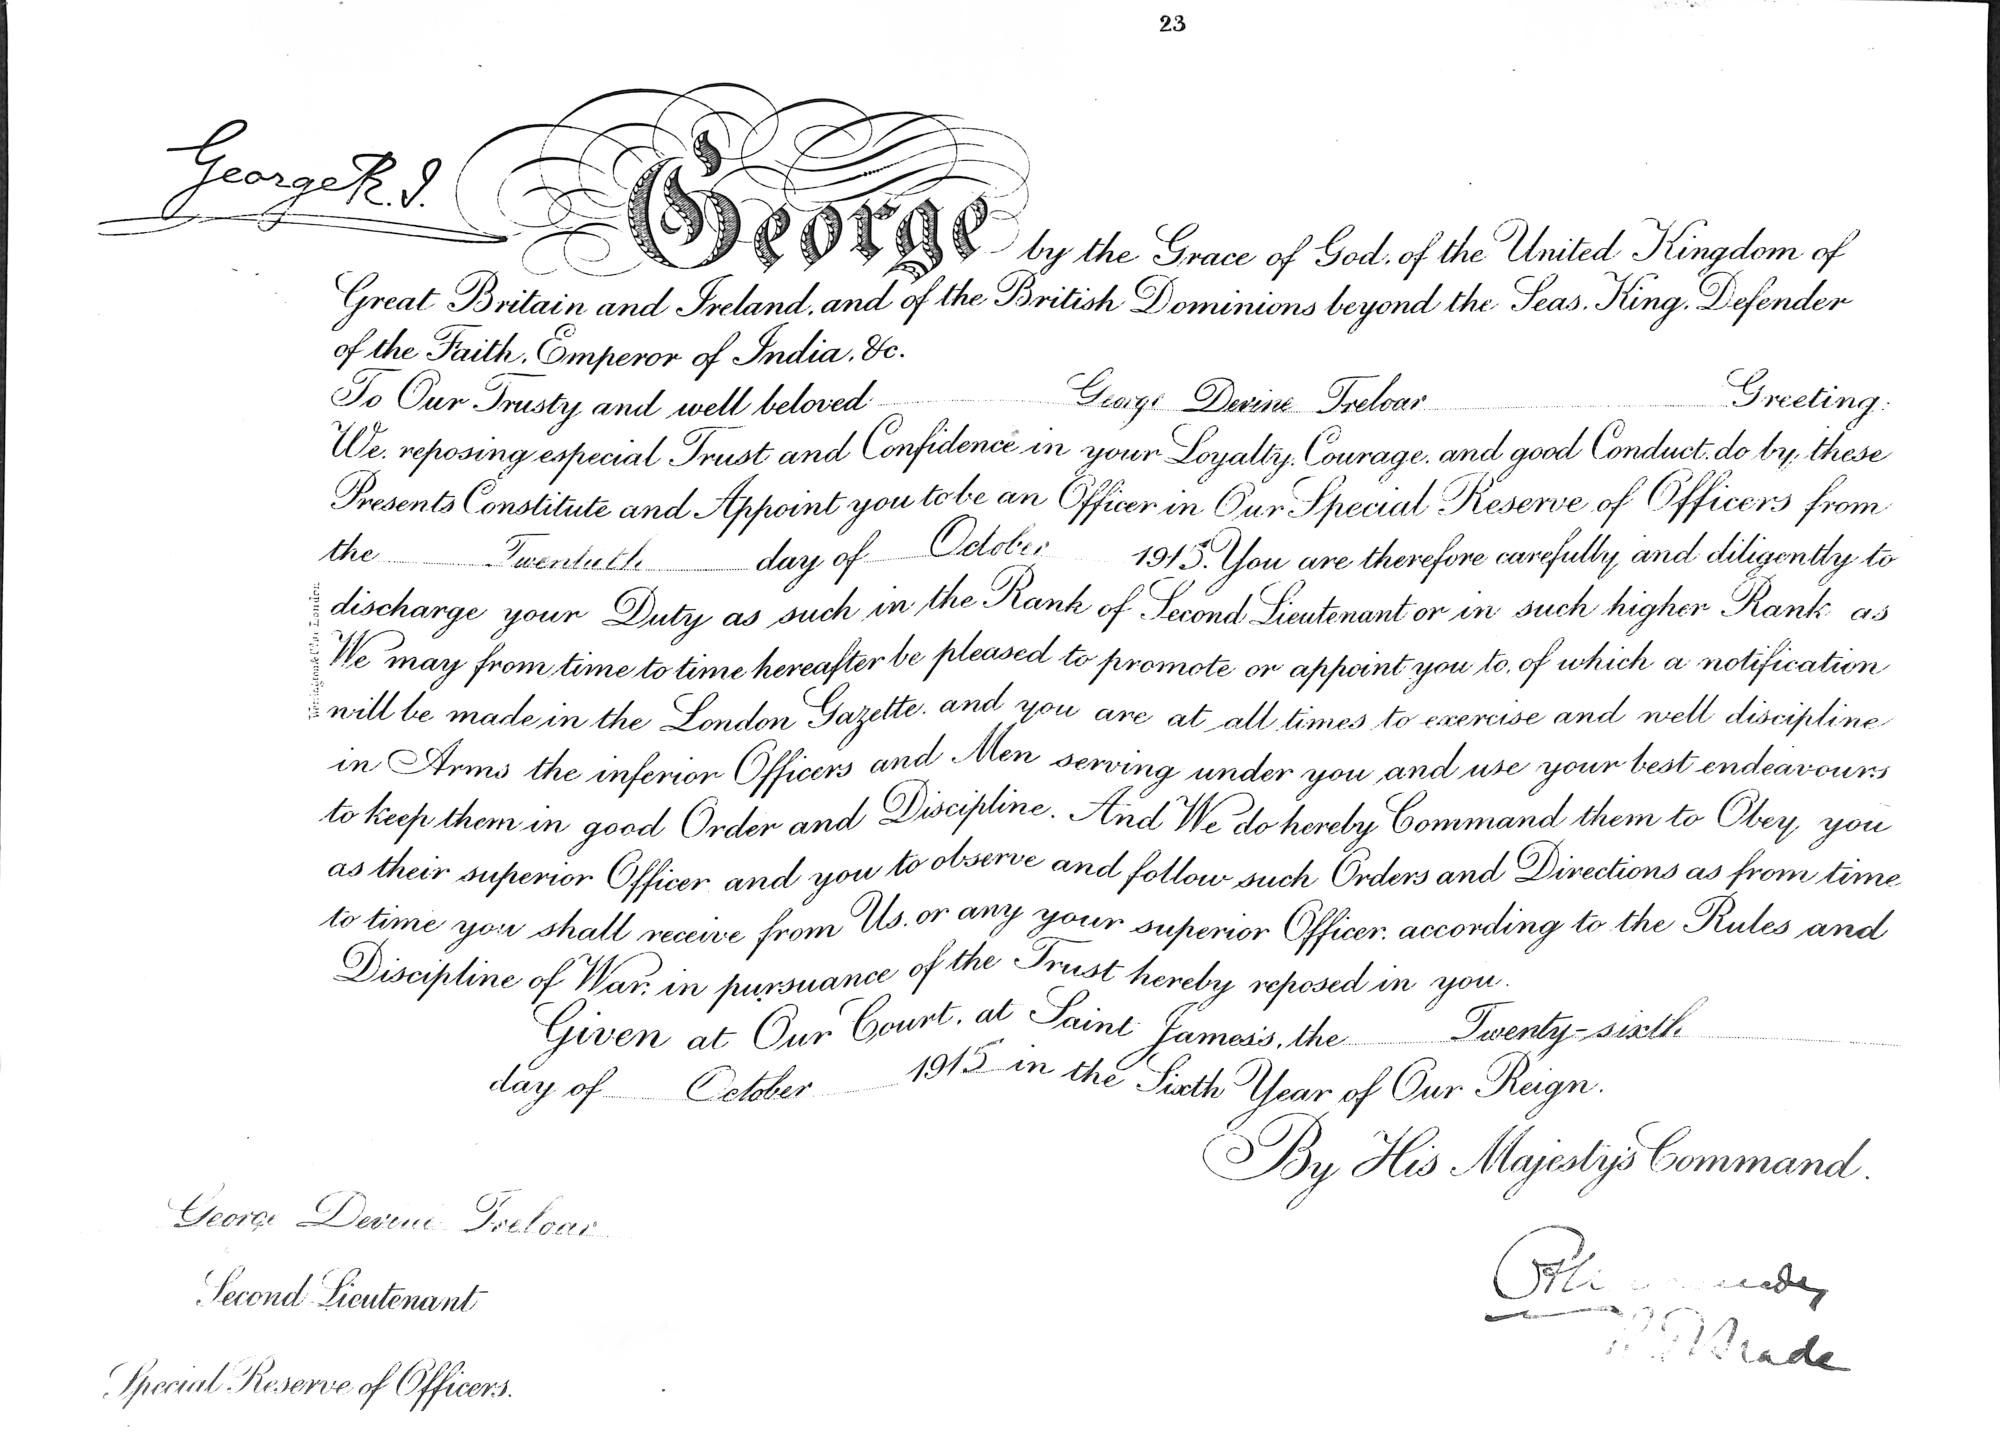 23
George R.I.
George by the Grace of God, of the United Kingdom of
Great Britain and Ireland, and of the British Dominions beyond the Seas, King, Defender
of the Faith, Emperor of India, &c.
To Our Trusty and well beloved George Devine Treloar Greeting:
We, reposing especial Trust and Confidence in your Loyalty, Courage, and good Conduct, do by these
Presents Constitute and Appoint you to be an Officer in Our Special Reserve of Officers from
the Twentieth day of October 1915. You are therefore carefully and diligently to
discharge your Duty as such in the Rank of Second Lieutenant or in such higher Rank as
We may from time to time hereafter be pleased to promote or appoint you to, of which a notification
will be made in the London Gazette, and you are at all times to exercise and well discipline
in Arms the inferior Officers and Men serving under you and use your best endeavours
to keep them in good Order and Discipline. And We do hereby Command them to Obey you
as their superior Officer and you to observe and follow such Orders and Directions as from time
to time you shall receive from Us, or any your superior Officer, according to the Rules and
Discipline of War, in pursuance of the Trust hereby reposed in you.
Given at Our Court, at Saint James's, the Twenty-sixth
day of October 1915 in the Sixth Year of Our Reign.
By His Majesty's Command.
George Devine Treloar
Second Lieutenant
Special Reserve of Officers.